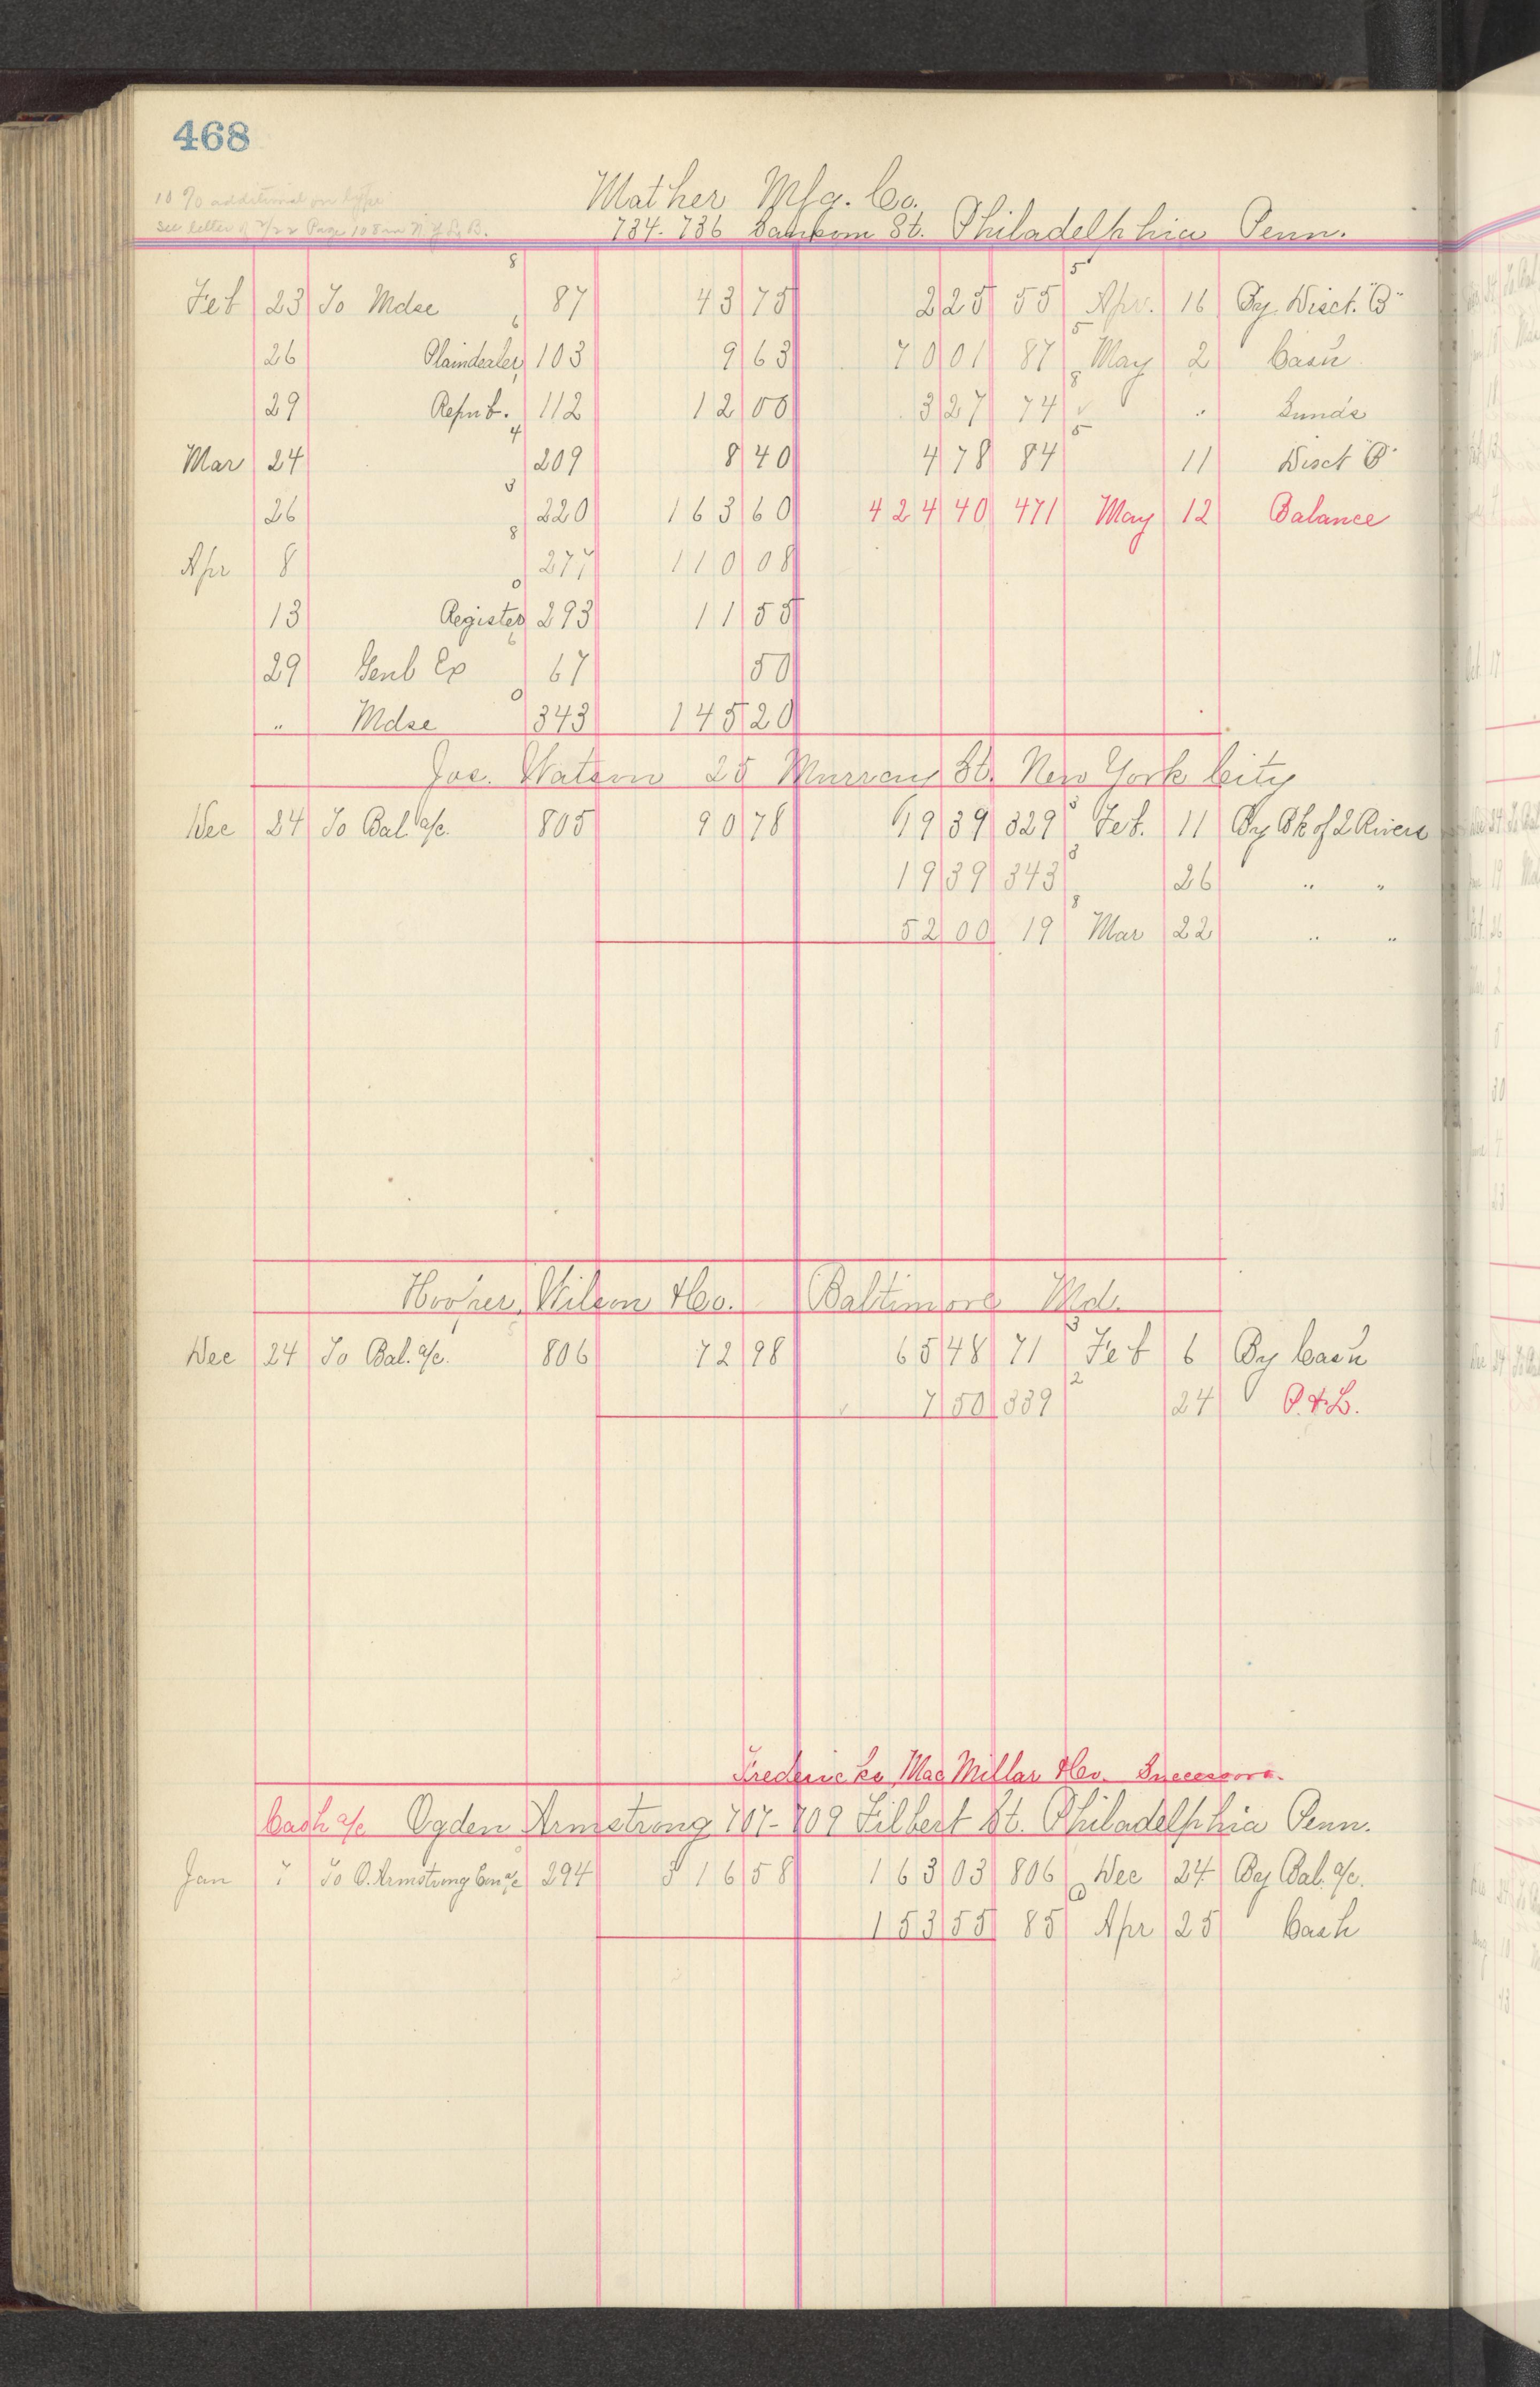 468
10 % additional on type
See letter of 2/22 Page 108 in N.Y.L.B.
Mather Mfg. Co.
734-736 Sansom St. Philadelphia Penn.
8 5
Feb 23 To Mdse 87 43 75 2 25 55 Apr. 16 By Disct. "B"
6 5
26 Plaindealer 103 9 63 70 01 87 May 2 Cash
8
29 Repub. 112 12 00 3 27 74 " Sunds
4 5
Mar 24 209 8 40 4 78 84 11 Disct "B"
3
26 220 163 60 424 40 471 May 12 Balance
8
Apr 8 277 110 08
0
13 Register 293 11 55
6
29 Genl Ex 67 50
0
" Mdse 343 145 20
Jos. Watson 25 Murray St. New York City
3
Dec 24 To Bal. a/c. 805 90 78 19 39 329 Feb. 11 By Bk of 2 Rivers
3
19 39 343 26 " "
8
52 00 19 Mar 22 " "
Hooper, Wilson & Co. Baltimore Md.
3
Dec 24 To Bal. a/c. 806 72 98 65 48 71 Feb 6 By Cash
2
7 50 339 24 P. & L.
Fredericks, MacMillar & Co. Successors.
Cash a/c Ogden Armstrong 707-709 Filbert St. Philadelphia Penn.
Jan 7 To O. Armstrong Con a/c 294 316 58 163 03 806 Dec 24 By Bal. a/c.
0
153 55 85 Apr 25 Cash